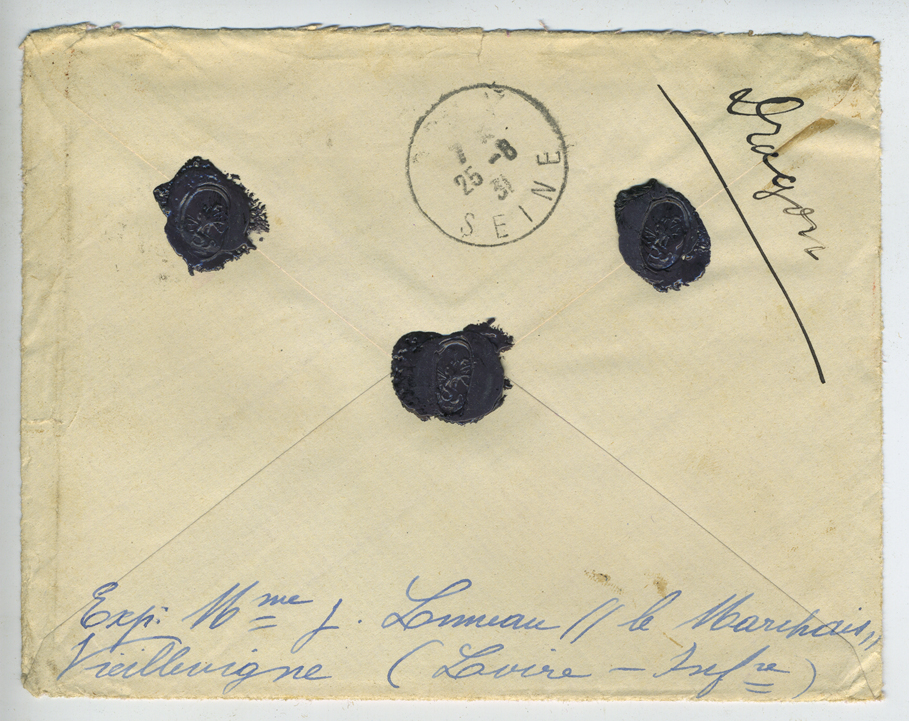 7 25 -8 31
SEINE
Dragon
Exp: Mme J. Luneau // le Marchais,,
Vieillevigne (Loire - Infre)